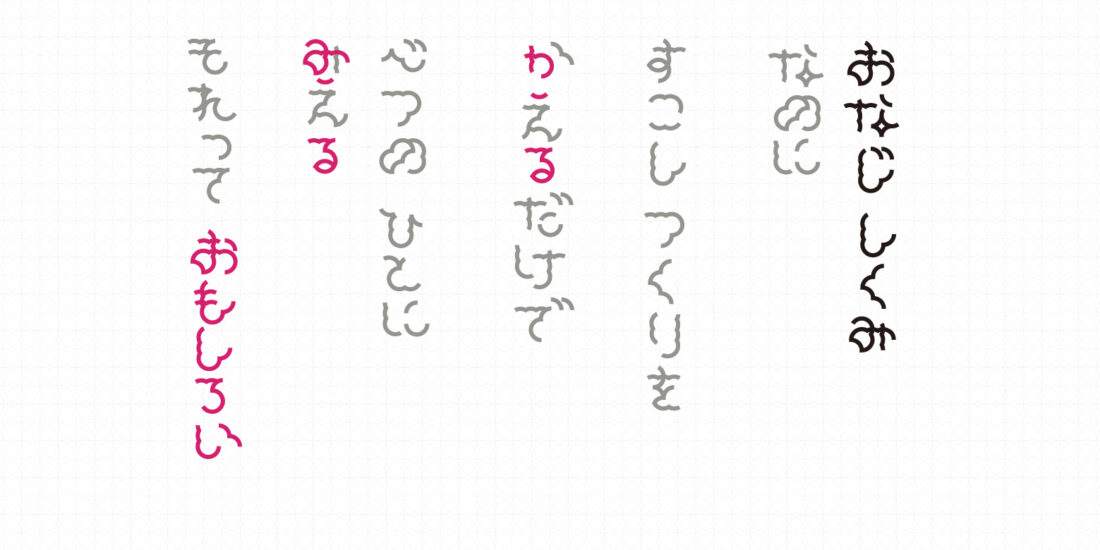 おなじ しくみ
なのに
すこし つくりを
かえるだけで
べつの ひとに
みえる
それって おもしろい